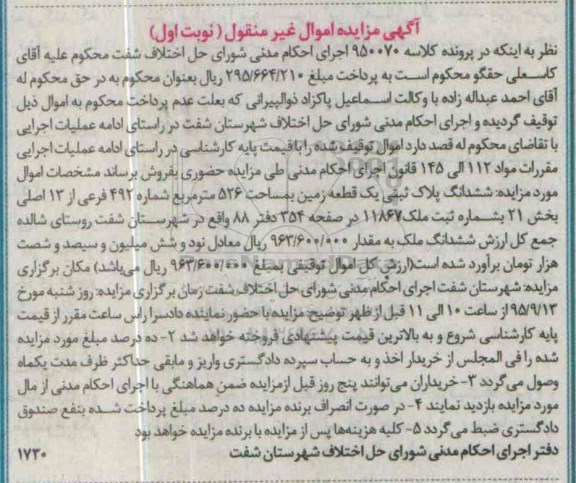 آگهی مزایده اموال غیر منقول ( نوبت اول)
نظر به اینکه در پرونده کلاسه ۹۵۰۰۷۰ اجرای احکام مدنی شورای حل اختلاف شفت محکوم علیه آقای
کاسعلی حقگو محکوم است به پرداخت مبلغ ۲۹۵/۶۶۴/۲۱۰ ریال بعنوان محکوم به در حق محکوم له
آقای احمد عبداله زاده با وکالت اسماعیل پاکزاد ذوالپیرانی که بعلت عدم پرداخت محکوم به اموال ذیل
توقیف گردیده و اجرای احکام مدنی شورای حل اختلاف شهرستان شفت در راستای ادامه عملیات اجرایی
با تقاضای محکوم له قصد دارد اموال توقیف شده را باقیمت پایه کارشناسی در راستای ادامه عملیات اجرایی
مقررات مواد ۱۱۲ الی ۱۴۵ قانون اجرای احکام مدنی طی مزایده حضوری بفروش برساند مشخصات اموال
مورد مزایده: ششدانگ پلاک ثبتی یک قطعه زمین بمساحت ۵۲۶ مترمربع شماره ۴۹۲ فرعی از ۱۳ اصلی
بخش ۲۱ بشماره ثبت ملک۱۱۸۶۷ در صفحه ۳۵۴ دفتر ۸۸ واقع در شهرستان شفت روستای شالده
جمع کل ارزش ششدانگ ملک به مقدار ۹۶۳/۶۰۰/۰۰۰ ریال معادل نود و شش میلیون و سیصد و شصت
هزار تومان برآورد شده است(ارزش کل اموال توقیفی بمبلغ ۹۶۳/۶۰۰/۰۰۰ ریال می‌باشد) مکان برگزاری
مزایده: شهرستان شفت اجرای احکام مدنی شورای حل اختلاف شفت زمان برگزاری مزایده: روز شنبه مورخ
۹۵/۹/۱۳ از ساعت ۱۰ الی ۱۱ قبل از ظهر توضیح: مزایده با حضور نماینده دادسرا راس ساعت مقرر از قیمت
پایه کارشناسی شروع و به بالاترین قیمت پیشنهادی فروخته خواهد شد ۲- ده درصد مبلغ مورد مزایده
شده را فی المجلس از خریدار اخذ و به حساب سپرده دادگستری واریز و مابقی حداکثر ظرف مدت یکماه
وصول می‌گردد ۳- خریداران می‌توانند پنج روز قبل ازمزایده ضمن هماهنگی با اجرای احکام مدنی از مال
مورد مزایده بازدید نمایند ۴- در صورت انصراف برنده مزایده ده درصد مبلغ پرداخت شده بنفع صندوق
دادگستری ضبط می‌گردد ۵- کلیه هزینه‌ها پس از مزایده با برنده مزایده خواهد بود
دفتر اجرای احکام مدنی شورای حل اختلاف شهرستان شفت ۱۷۳۰